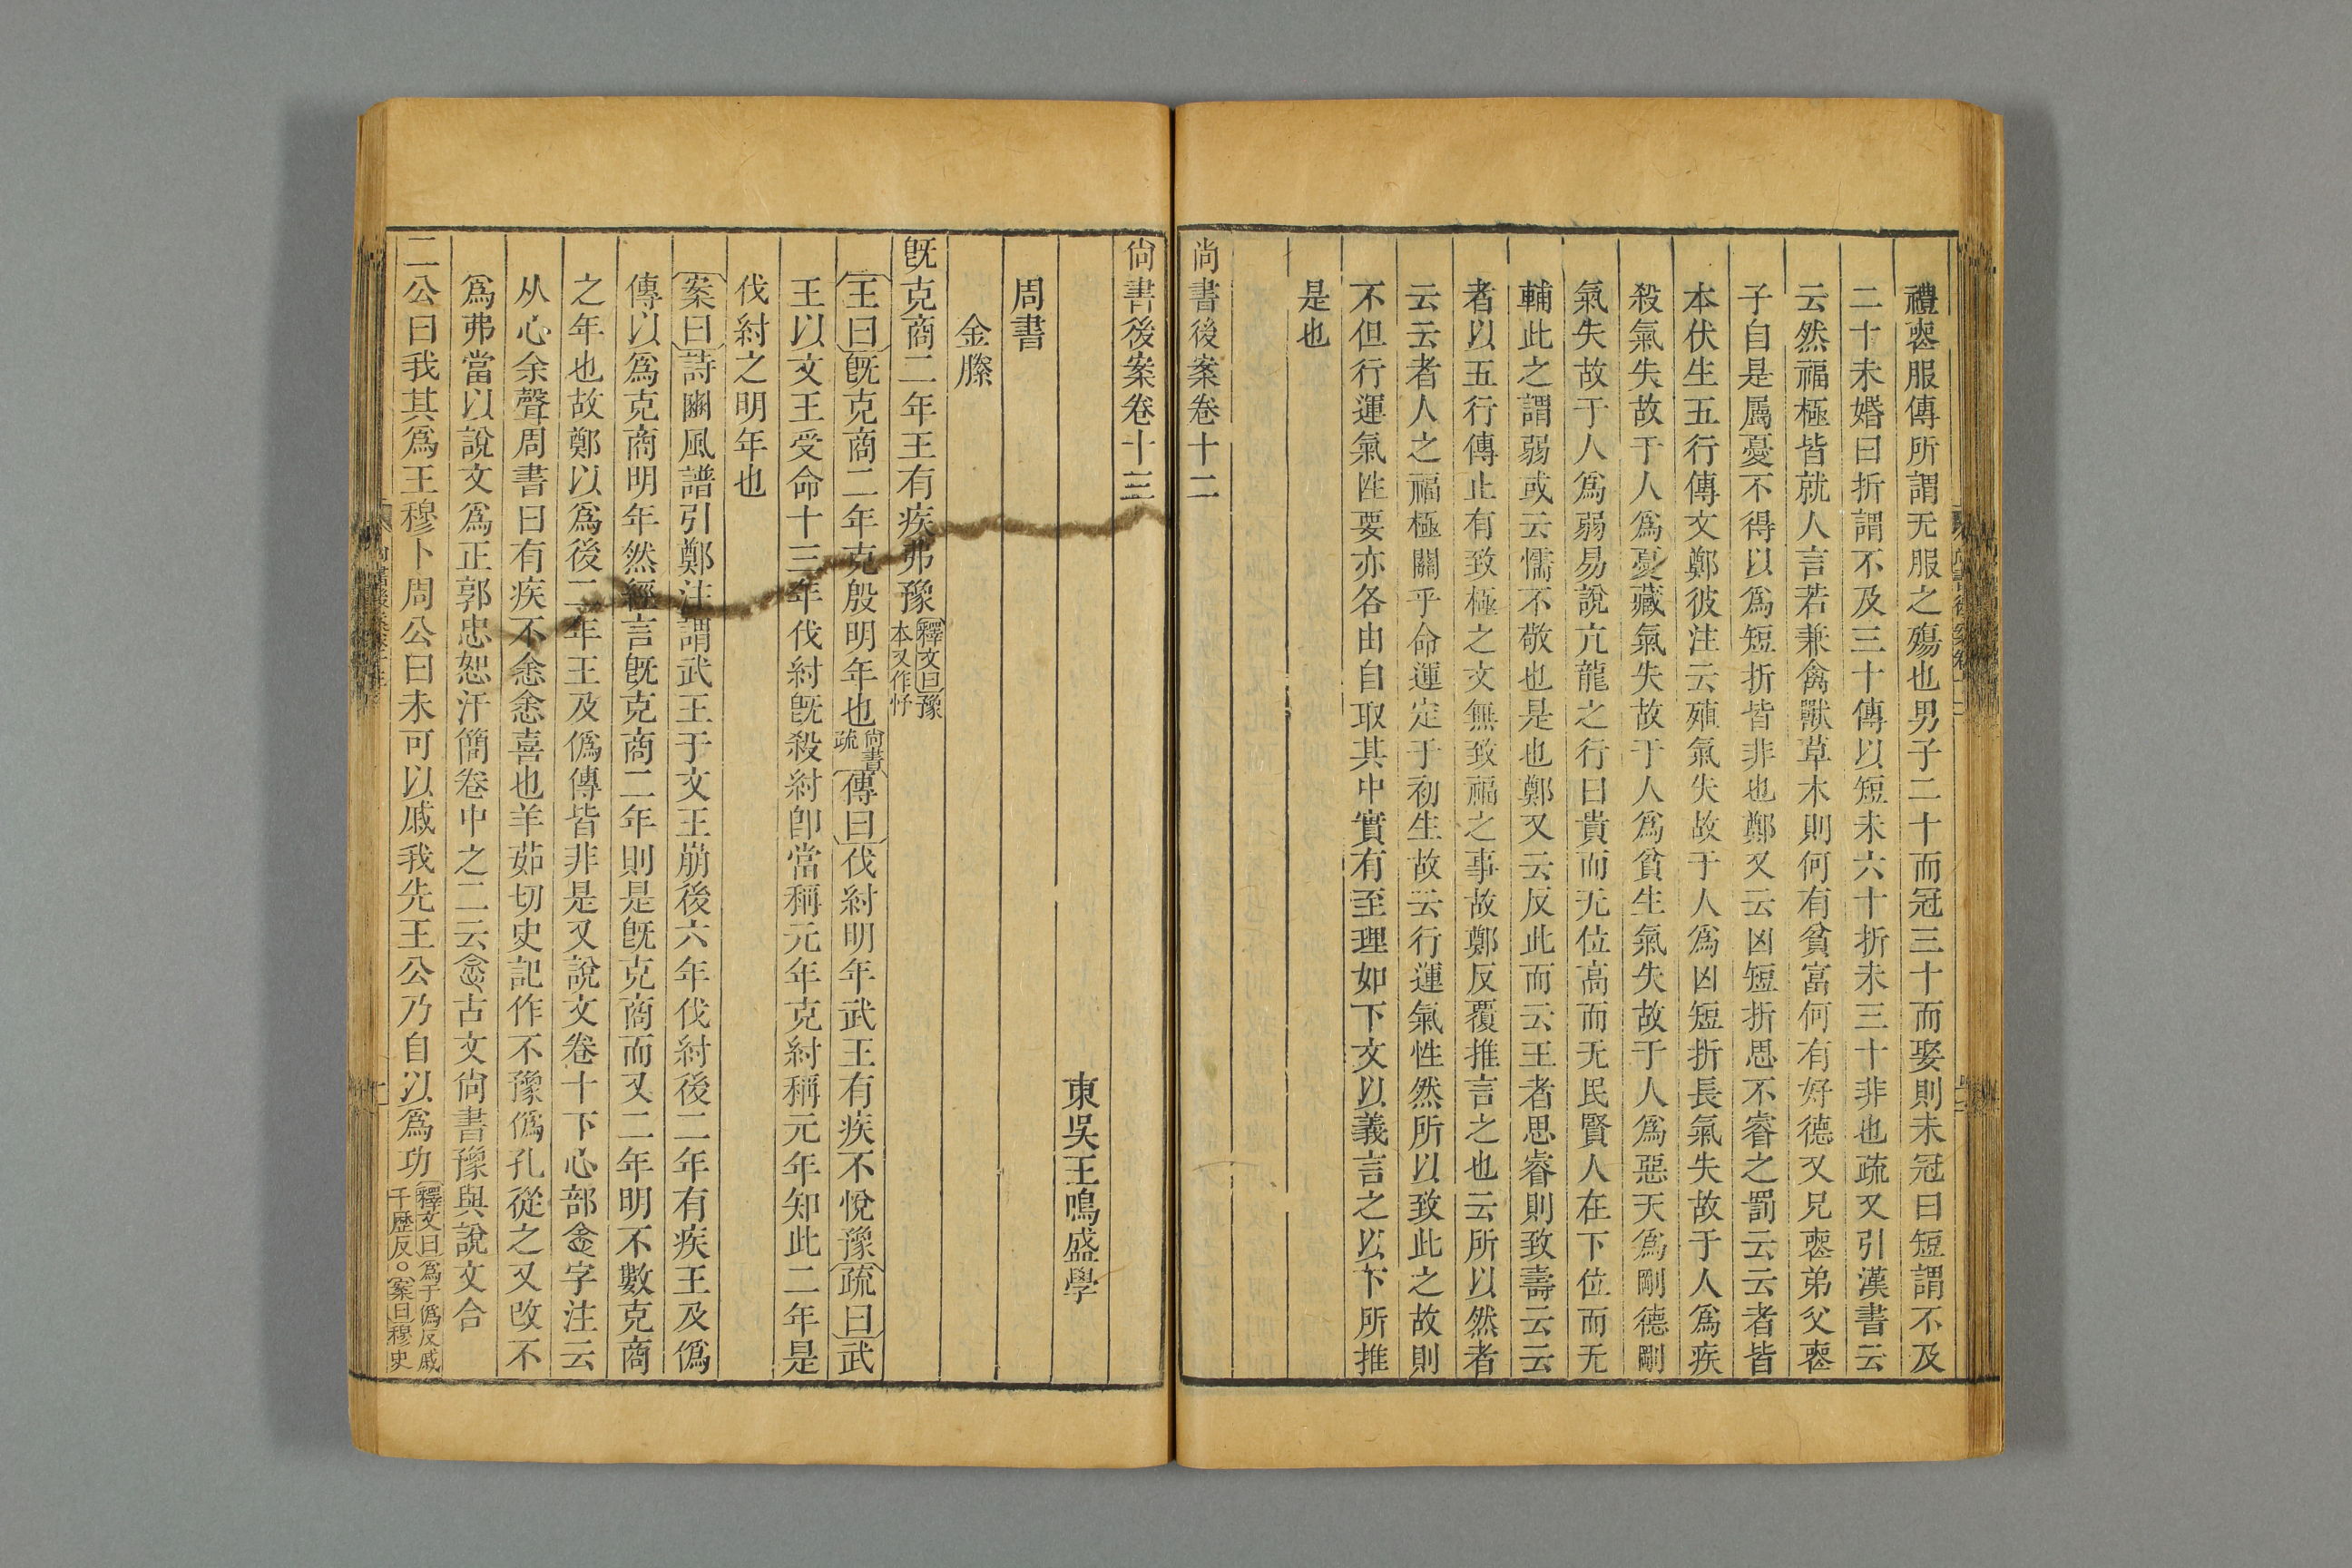 禮喪服傳所謂无服之殤也男子二十而冠三十而娶則未冠曰短謂不及
二十未婚曰折謂不及三十傳以短未六十折未三十非也疏又引漢書云
云然福極皆就人言若兼禽獸草木則何有貧富何有好德又兄喪弟父喪
子自是屬憂不得以爲短折皆非也鄭又云凶短折思不睿之罰云云者皆
本伏生五行傳文鄭彼注云殖氣失故于人爲凶短折長氣失故于人爲疾
殺氣失故于人爲憂藏氣失故于人爲貧生氣失故于人爲惡天爲剛德剛
氣失故于人爲弱易說亢龍之行曰貴而无位高而无民賢人在下位而无
輔此之謂弱或云懦不敬也是也鄭又云反此而云王者思睿則致壽云云
者以五行傳止有致極之文無致福之事故鄭反覆推言之也云所以然者
云云者人之福極關乎命運定于初生故云行運氣性然所以致此之故則
不但行運氣性要亦各由自取其中實有至理如下文以義言之以下所推
是也
尚書後案卷十二
尚書後案卷十三
東吳王鳴盛學
周書
金縢
旣克商二年王有疾弗豫釋文曰豫本又作忬
王曰旣克商二年克殷明年也尚書疏傳曰伐紂明年武王有疾不悅豫疏曰武
王以文王受命十三年伐紂旣殺紂卽當稱元年克紂稱元年知此二年是
伐紂之明年也
案曰詩豳風譜引鄭注謂武王于文王崩後六年伐紂後二年有疾王及僞
傳以爲克商明年然經言旣克商二年則是旣克商而又二年明不數克商
之年也故鄭以爲後二年王及僞傳皆非是又說文卷十下心部悆字注云
从心余聲周書曰有疾不悆悆喜也羊茹切史記作不豫僞孔從之又改不
爲弗當以說文爲正郭忠恕汗簡卷中之二云悆古文尚書豫與說文合
二公曰我其爲王穆卜周公曰未可以戚我先王公乃自以爲功釋文曰爲于僞反戚千歷反○案曰穆史